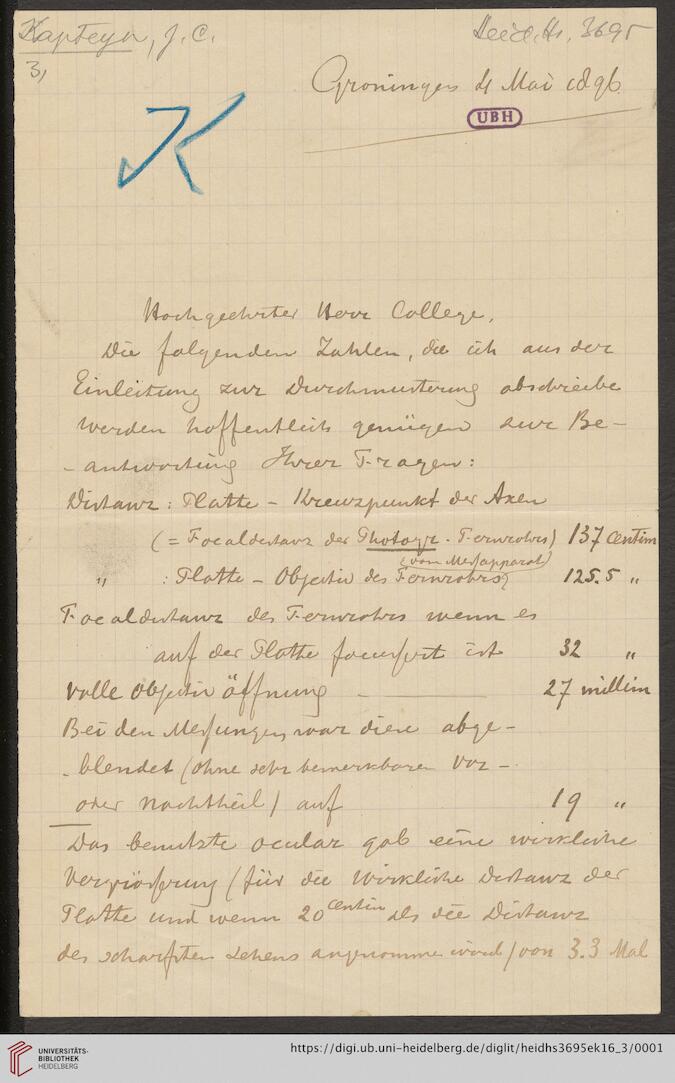 Kapteyn, J. C.
Heid. Hs. 3695
3,
Groningen 4 Mai 1896
UBH
K
Hochgeehrter Herr College,
Die folgenden Zahlen, die ich aus der
Einleitung zur Durchmusterung abschreibe
werden hoffentlich genügen zur Be-
-antwortung Ihrer Fragen:
Distanz: Platte - Kreuzpunkt der Axen
(= Focaldistanz der Photogr. Fernrohrs) 137 centim
(vom Meßapparat)
„ : Platte - Objectiv des Fernrohrs 125.5 „
Focaldistanz des Fernrohrs wenn es
auf der Platte focussirt ist 32 „
volle Objectiv öffnung - 27 millim
Bei den Messungen war diese abge-
-blendet (ohne sehr bemerkbaren Vor-
oder Nachtheil) auf 19 „
Das benutzte Ocular gab eine wirkliche
Vergrösserung (für die wirkliche Distanz der
Platte und wenn 20 centim als die Distanz
des scharfsten Sehens angenommen wird) von 3.3 Mal
UNIVERSITÄTS-
BIBLIOTHEK
HEIDELBERG
https://digi.ub.uni-heidelberg.de/diglit/heidhs3695ek16_3/0001